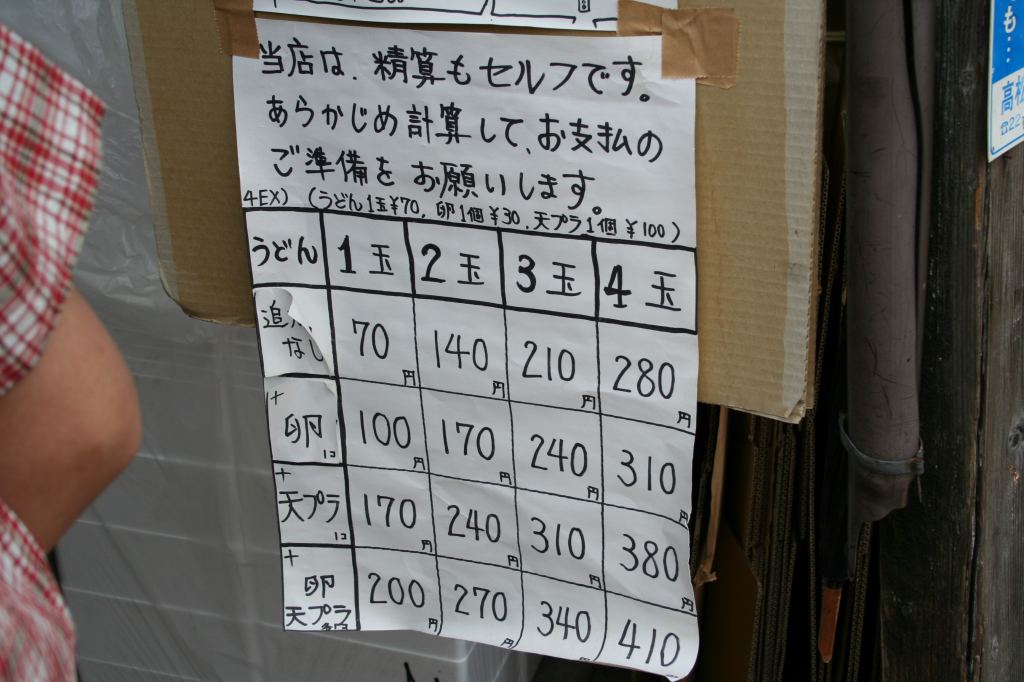 当店は、精算もセルフです。
あらかじめ計算して、お支払の
ご準備をお願いします。
4EX) (うどん1玉¥70, 卵1個¥30, 天プラ1個¥100)
うどん 1玉 2玉 3玉 4玉
追 なし 70円 140円 210円 280円
+卵1コ 100円 170円 240円 310円
+天プラ1コ 170円 240円 310円 380円
+卵 天プラ 200円 270円 340円 410
も…
高松
☎22